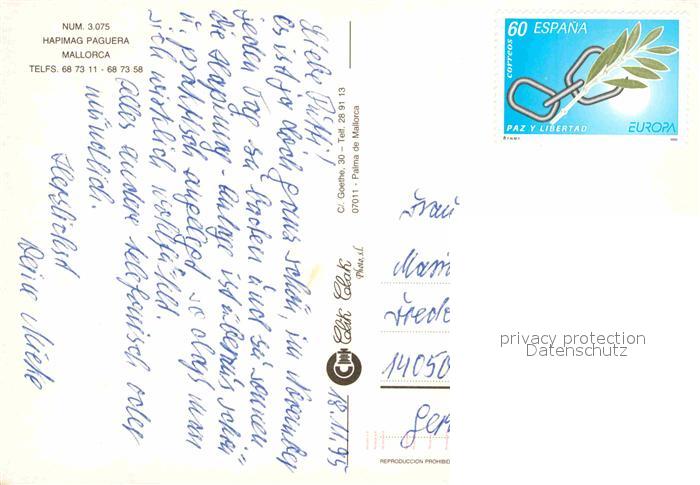 NUM. 3.075
HAPIMAG PAGUERA
MALLORCA
TELFS. 68 73 11 - 68 73 58
Liebe Putti!
es ist ja doch ganz schön, im November
jeden Tag zu baden und zu sonnen
die Hapimag-Anlage ist überaus schön
u. praktisch angelegt, so dass man
sich wirklich wohlfühlt.
alles andere telefonisch oder
mündlich.
Herzlichst
Deine
C/. Goethe, 30 – Telf. 28 91 13
07011 - Palma de Mallorca
Clik Clak
Photo, s.l.
18.11.95
60 ESPAÑA
correos
PAZ Y LIBERTAD
EUROPA
Frau
14050
Ger
REPRODUCCION PROHIBID
privacy protection
Datenschutz